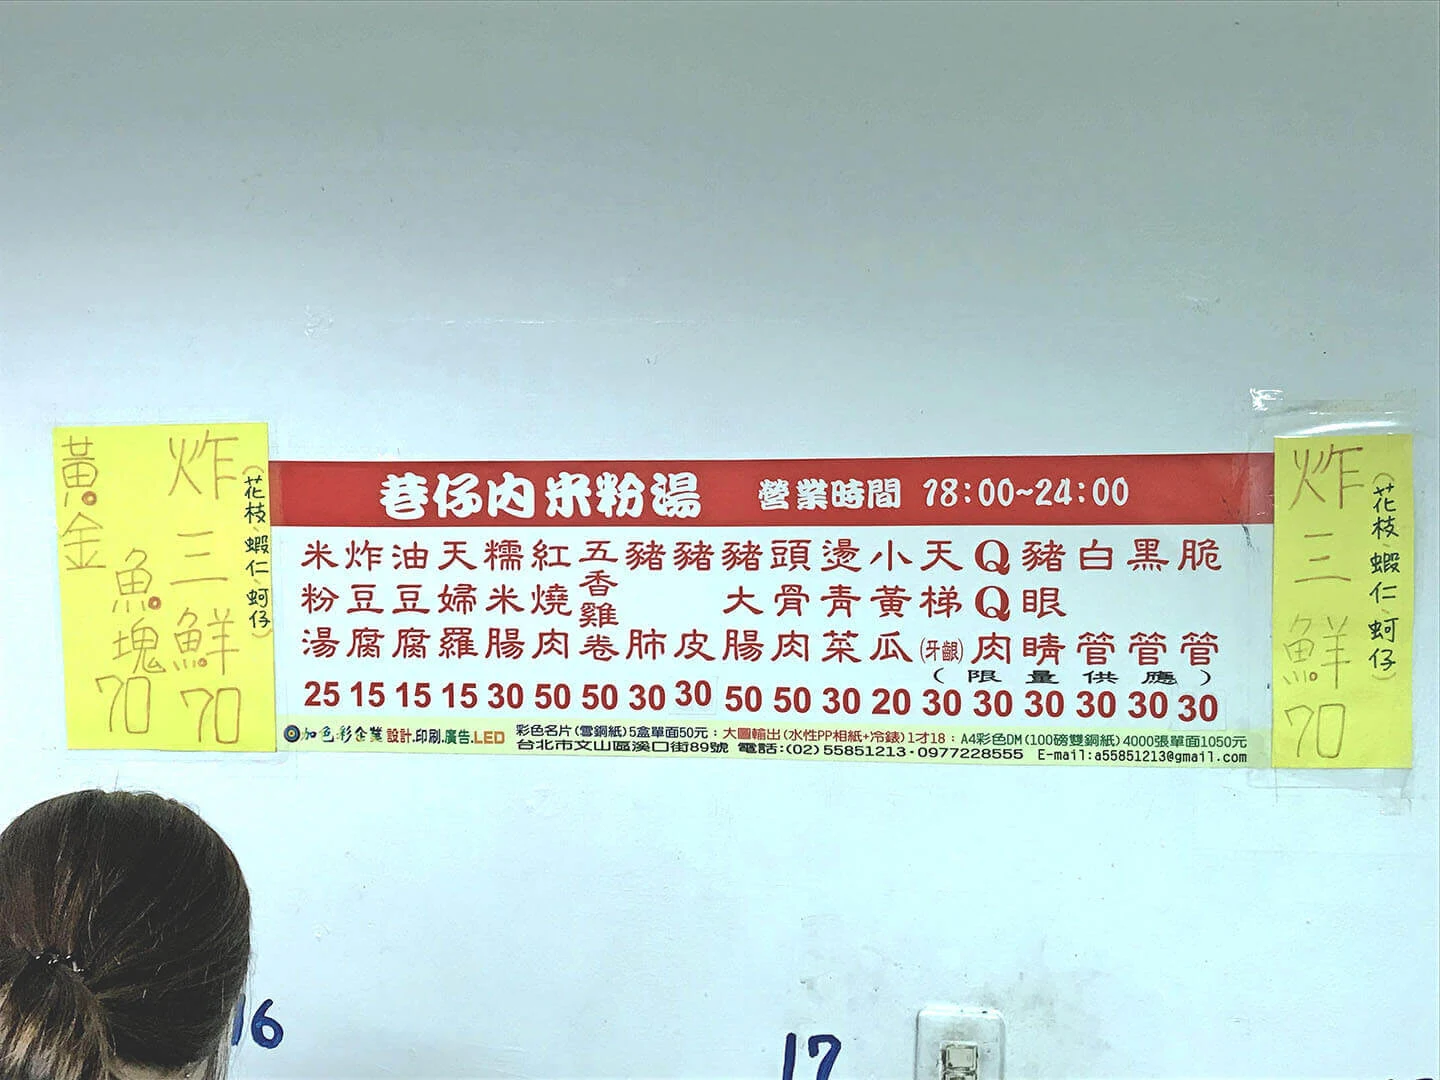 黃金
魚塊
70
炸三鮮
70
(花枝、蝦仁、蚵仔)
巷仔內米粉湯 營業時間 18:00~24:00
米粉湯 25
炸豆腐 15
油豆腐 15
天婦羅 15
糯米腸 30
紅燒肉 50
五香雞卷 50
豬肺 30
豬皮 30
豬大腸 50
頭骨肉 50
燙青菜 30
小黃瓜 20
天梯(牙齦) 30
QQ肉 30
豬眼睛 30
白管 30
黑管 30
脆管 30
(限量供應)
加色彩企業 設計.印刷.廣告.LED
彩色名片(雪銅紙)5盒單面50元：大圖輸出(水性PP相紙+冷錶)1才18：A4彩色DM(100磅雙銅紙)4000張單面1050元
台北市文山區溪口街89號 電話:(02)55851213·0977228555 E-mail:a55851213@gmail.com
炸三鮮
70
(花枝、蝦仁、蚵仔)
16
17